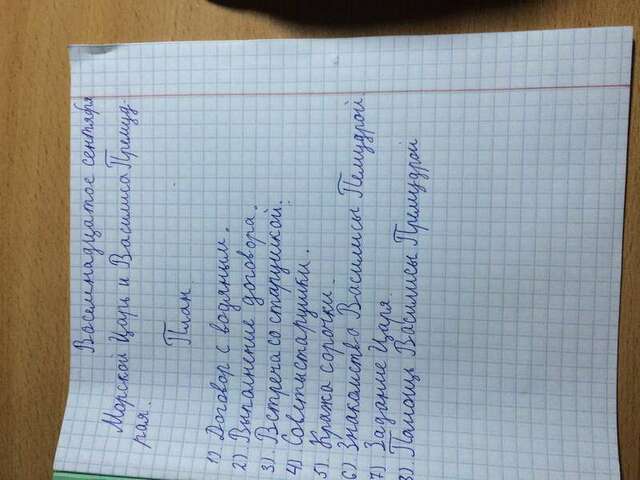 Васемнадцатое сентября
Морской Царь и Василиса Премуд-
рая.
План
1) Договор с водяным.
2) Выполнение договора.
3) Встреча со старушкой.
4) Советы старушки.
5) Кража сорочки.
6) Знакомство Василисы Пемудрой
7) Задание Царя.
8) Помощь Василисы Премудрой